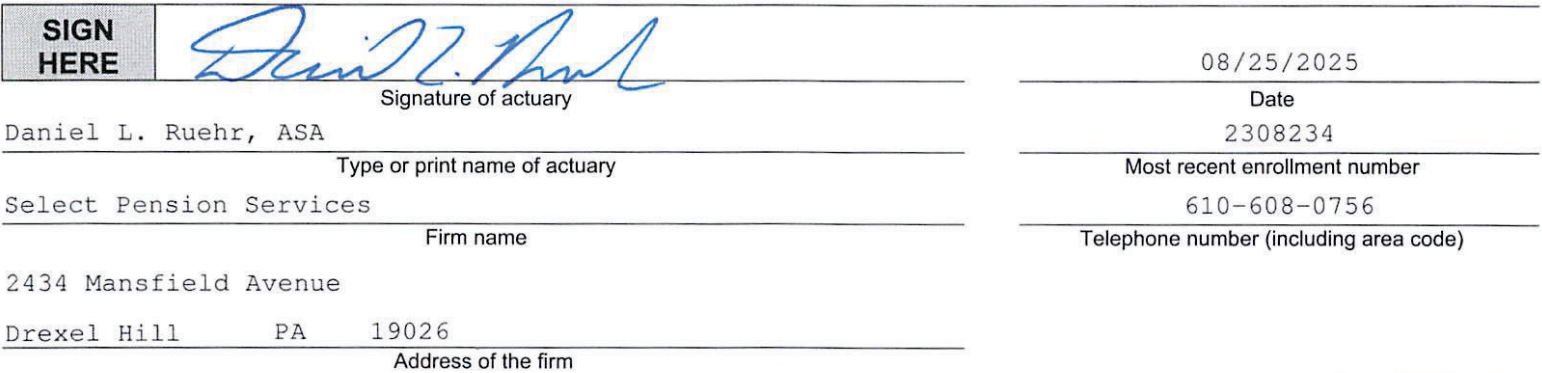 SIGN
HERE
08/25/2025
Signature of actuary
Date
Daniel L. Ruehr, ASA
2308234
Type or print name of actuary
Most recent enrollment number
Select Pension Services
610-608-0756
Firm name
Telephone number (including area code)
2434 Mansfield Avenue
Drexel Hill PA 19026
Address of the firm